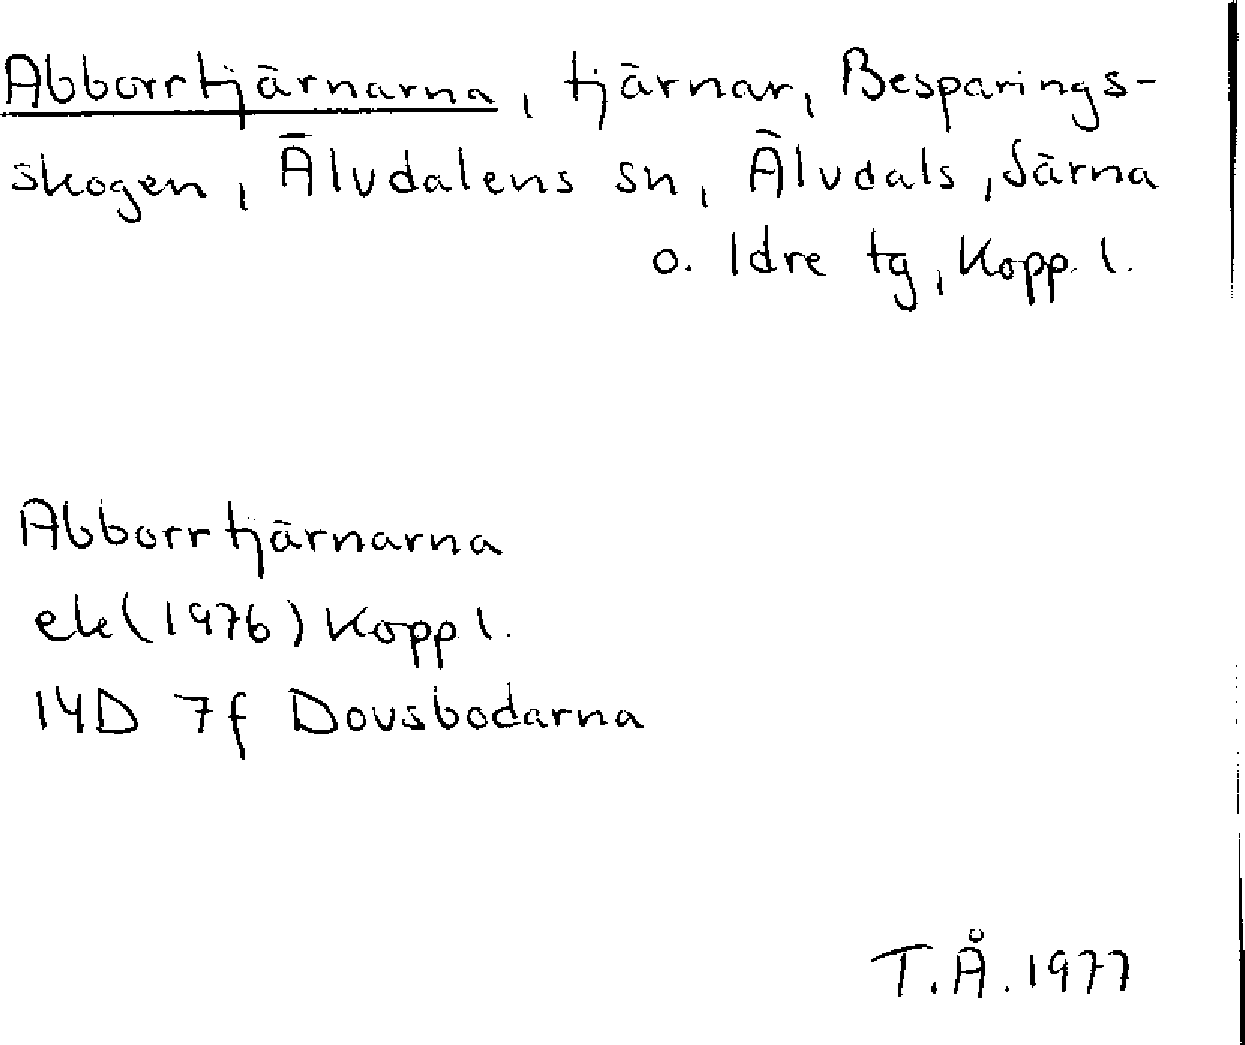 Abborrtjärnarna, tjärnar, Besparings-
skogen, Älvdalens sn, Älvdals, Särna
o. Idre tg, Kopp. l.
Abborrtjärnarna
ek (1976) Kopp l.
14D 7f Dovsbodarna
T.Å. 1977